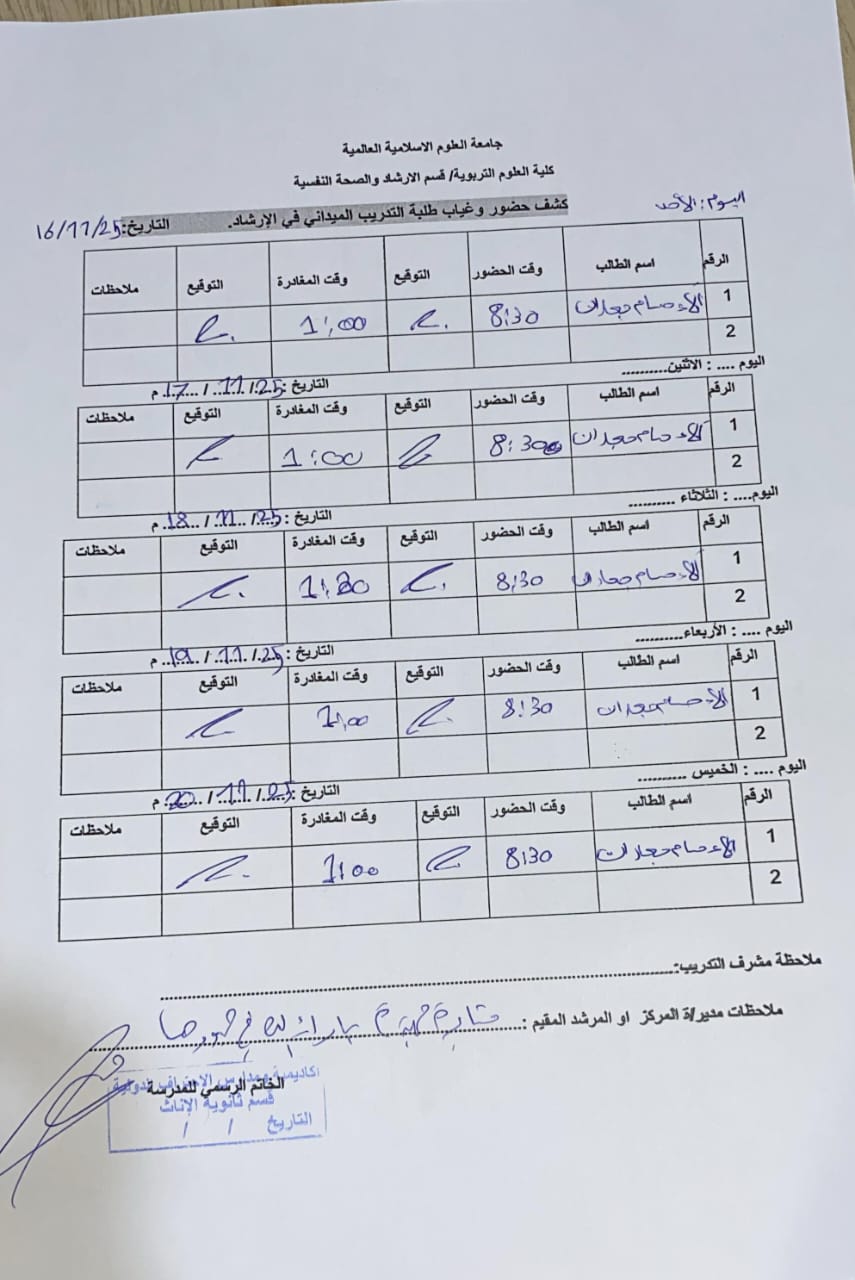 جامعة العلوم الاسلامية العالمية
كلية العلوم التربوية/ قسم الارشاد والصحة النفسية
اليوم: الأحد
كشف حضور وغياب طلبة التدريب الميداني في الإرشاد. التاريخ: 16/11/25
الرقم اسم الطالب وقت الحضور التوقيع وقت المغادرة التوقيع ملاحظات
1 8:30 1:00
2
اليوم .... : الاثنين.......... التاريخ : 25/ 11/ 17 م
الرقم اسم الطالب وقت الحضور التوقيع وقت المغادرة التوقيع ملاحظات
1 8:30 1:00
2
اليوم.... : الثلاثاء .......... التاريخ : 25/ 11/ 18 م
الرقم اسم الطالب وقت الحضور التوقيع وقت المغادرة التوقيع ملاحظات
1 8:30
2
اليوم .... : الأربعاء.......... التاريخ : 25/ 11/ 19 م
الرقم اسم الطالب وقت الحضور التوقيع وقت المغادرة التوقيع ملاحظات
1 8:30 1:00
2
اليوم .... : الخميس .......... التاريخ : 25/ 11/ 20 م
الرقم اسم الطالب وقت الحضور التوقيع وقت المغادرة التوقيع ملاحظات
1 8:30 1:00
2
ملاحظة مشرف التدريب:
ملاحظات مدير/ة المركز او المرشد المقيم :
الخاتم الرسمي للمدرسة
قسم ثانوية الإناث
التاريخ / /